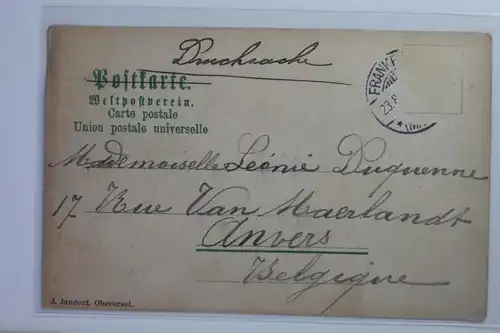 Drucksache
Postkarte.
Weltpostverein.
Carte postale
Union postale universelle
FRANKF
23.8
Mademoiselle Léonie Duquenne
17 Rue Van Maerlandt
Anvers
Belgique
J. Jandorf, Oberursel.